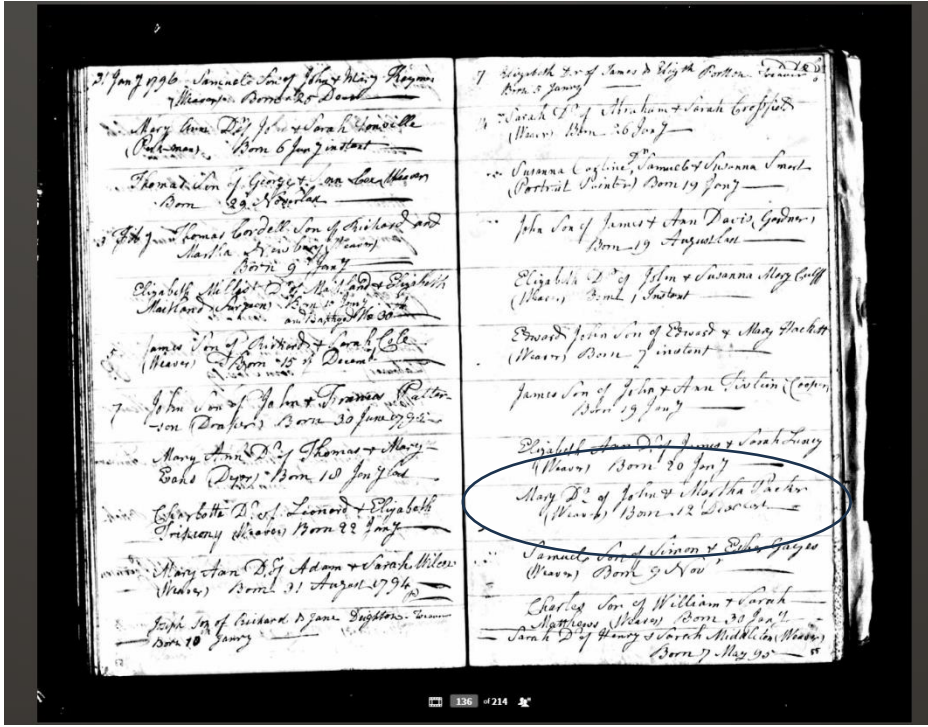 31 Jany 1796 Samuel Son of John & Mary Haymes
(Weaver) Born 25 Decr
Mary Ann Dr of John & Sarah
Born 6 Jany instant
Thomas Son of George & Ann Lee (Weaver)
Born 29 November
Thomas Cordell Son of Richard and
Martha Newbury (Weaver)
Born 9th Jany
Elizabeth Dr of Maitland & Elizabeth
Maitland (Surgeon) Born Jany
and Baptized No 30
James Son of Richard & Sarah Cole
(Weaver) Born 15 of Decemb
7 John Son of John & Frances Patter-
-son (Draper) Born 30 June 1795
Mary Ann Dr of Thomas & Mary
Evans Dyer Born 18 Jany last
Charlotte Dr of Leonard & Elizabeth
(Weaver) Born 22 Jany
Mary Ann Dr of Adam & Sarah Wilcox
(Weaver) Born 31 August 1794
Joseph Son of Richard & Jane Deighton Weaver
Born 10th Janry
7 Elizabeth Dr of James & Elizth
Born 5 Janry
14 Sarah Dr of Abraham & Sarah Crossfield
(Weaver) Born 26 Jany
Susanna Dr Samuel & Susanna Smart
(Portrait Painter) Born 19 Jany
John Son of James & Ann Davis (Gardner)
Born 19 August last
Elizabeth Dr of John & Susanna Mary Cuff
(Weaver) Born 1 Instant
Edward John Son of Edward & Mary Hackett
(Weaver) Born 7 instant
James Son of John & Ann (Cooper)
Born 19 Jany
Elizabeth Ann Dr of James & Sarah Luney
(Weaver) Born 20 Jany
Mary Dr of John & Martha Parker
(Weaver) Born 12 Decr last
Samuel Son of Simon & Esther Gayes
(Weaver) Born 9 Nov
Charles Son of William & Sarah
Matthews (Weaver) Born 30 Jany
Sarah Dr of Henry & Sarah Middleton (Weaver)
Born 7 May 95
55
136 of 214